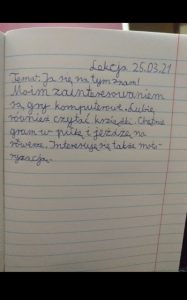 Lekcja 25.03.21
Temat: Ja się na tym znam!
Moim zainteresowaniem
są gry komputerowe. Lubię
również czytać książki. Chętnie
gram w piłkę i jeżdżę na
rowerze. Interesuję się także moto-
ryzacją.